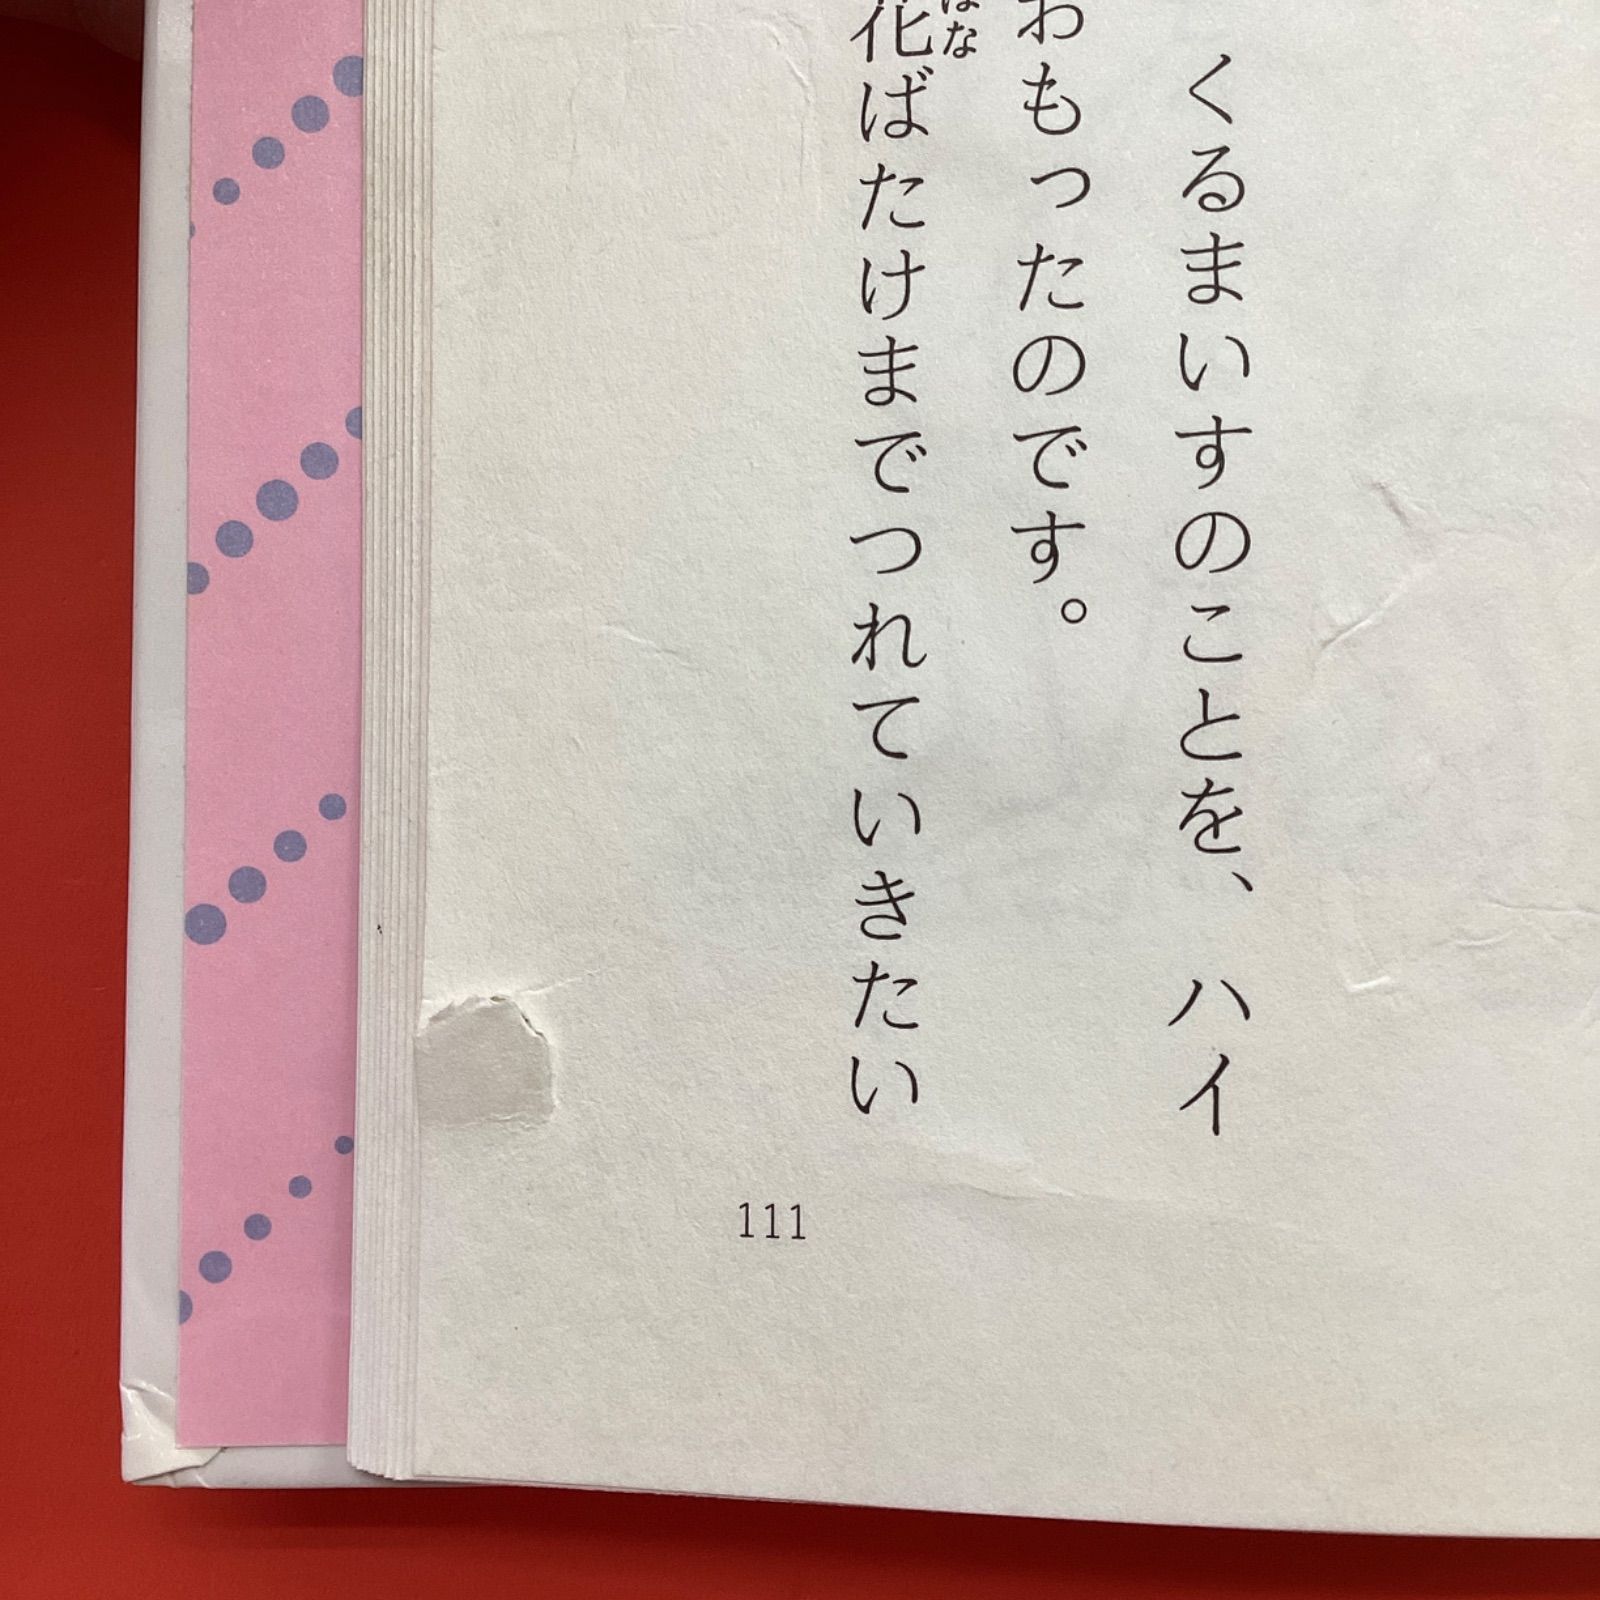 くるまいすのことを、ハイ
おもったのです。
花ばたけまでつれていきたい
ばな
111